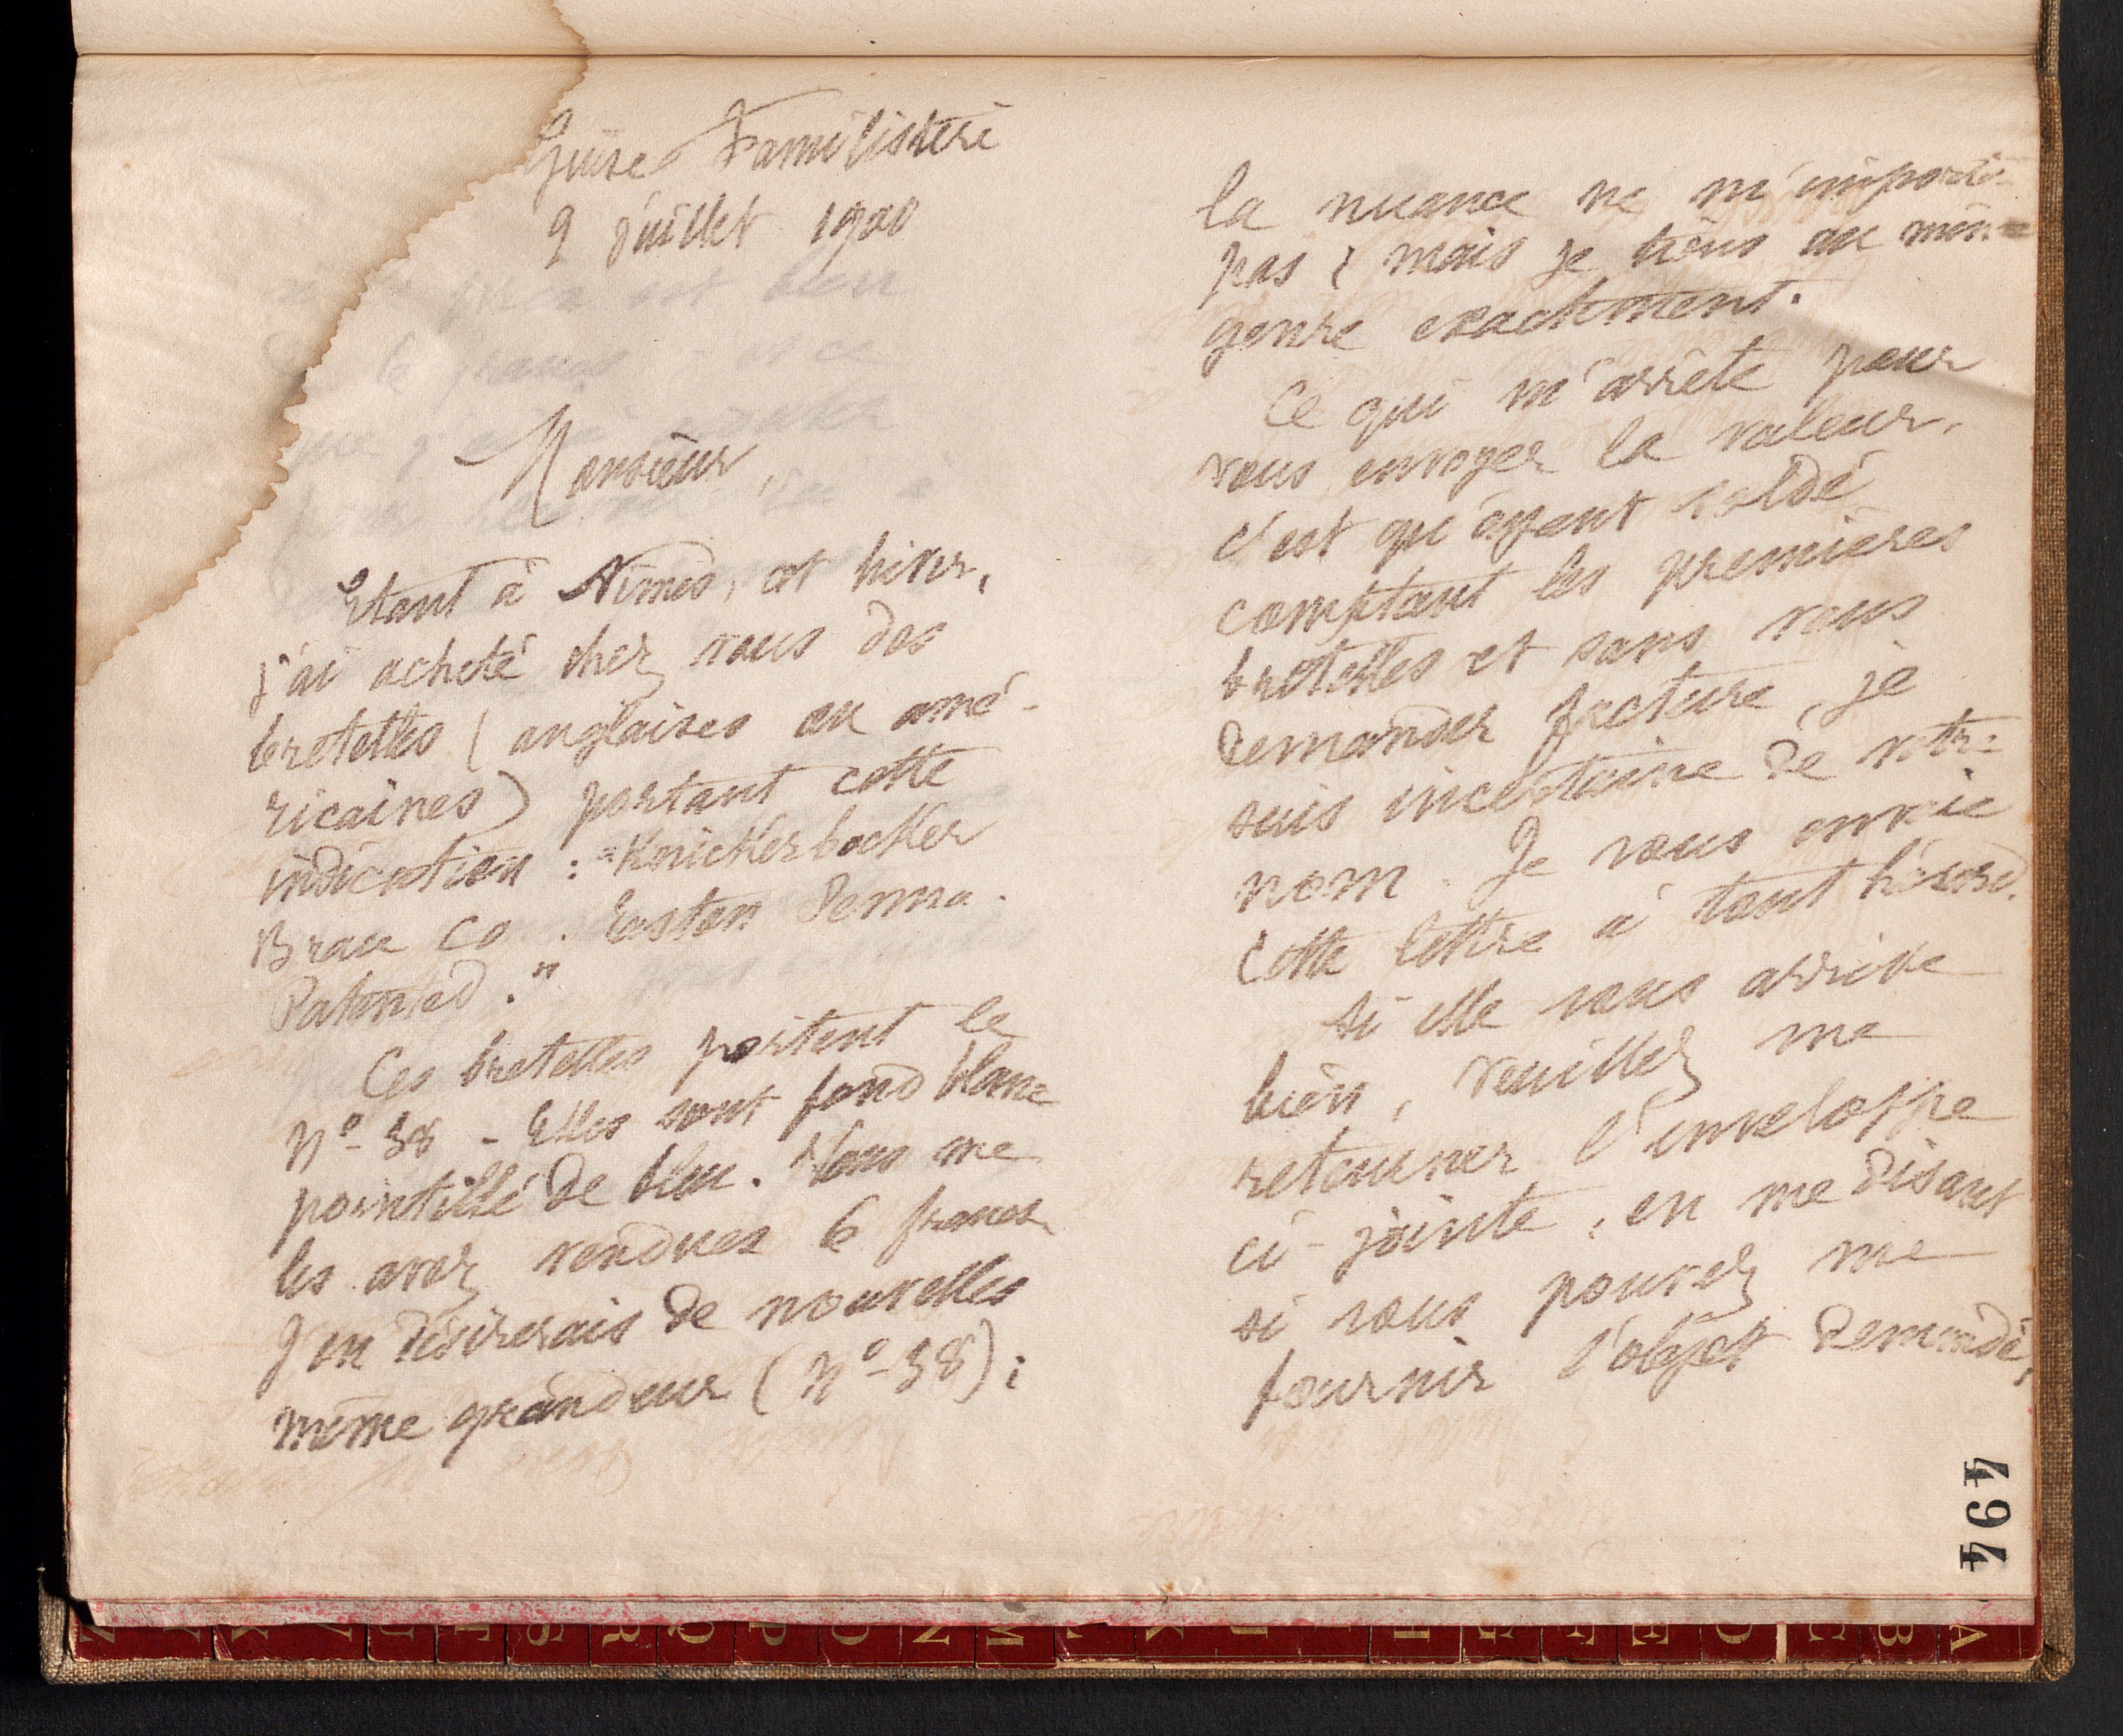 Guise Familistère
9 juillet 1900
Monsieur,
Etant à Nîmes, cet hiver,
j'ai acheté chez vous des
bretelles (anglaises ou amé-
ricaines) portant cette
indication : "Knickerbocker
Brace Co. Easton Penna.
Patented."
Ces bretelles portent le
No 38 - Elles sont fond blanc
pointillé de bleu. Vous me
les avez vendues 6 francs
J'en désirerais de nouvelles
même grandeur (No 38);
la nuance ne m'importe
pas; mais je tiens au même
genre exactement.
Ce qui m'arrête pour
vous envoyer la valeur,
c'est qu'ayant soldé
comptant les premières
bretelles et sans vous
demander facture, je
suis incertaine de votre
nom. Je vous envoie
cette lettre à tout hasard.
Si elle vous arrive
bien, veuillez me
retourner l'enveloppe
ci-jointe, en me disant
si vous pouvez me
fournir l'objet demandé,
464
A B C D E F G H J K L M N O P Q R S T U V X Z